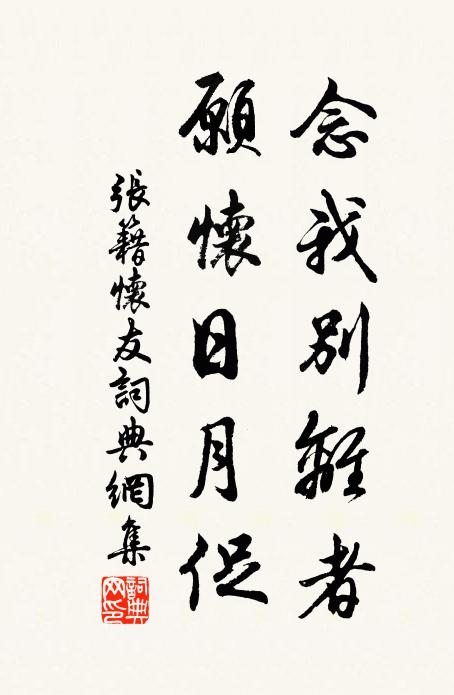 念我別離者
願懷日月促
張籍懷友詞典網集
詞典网印